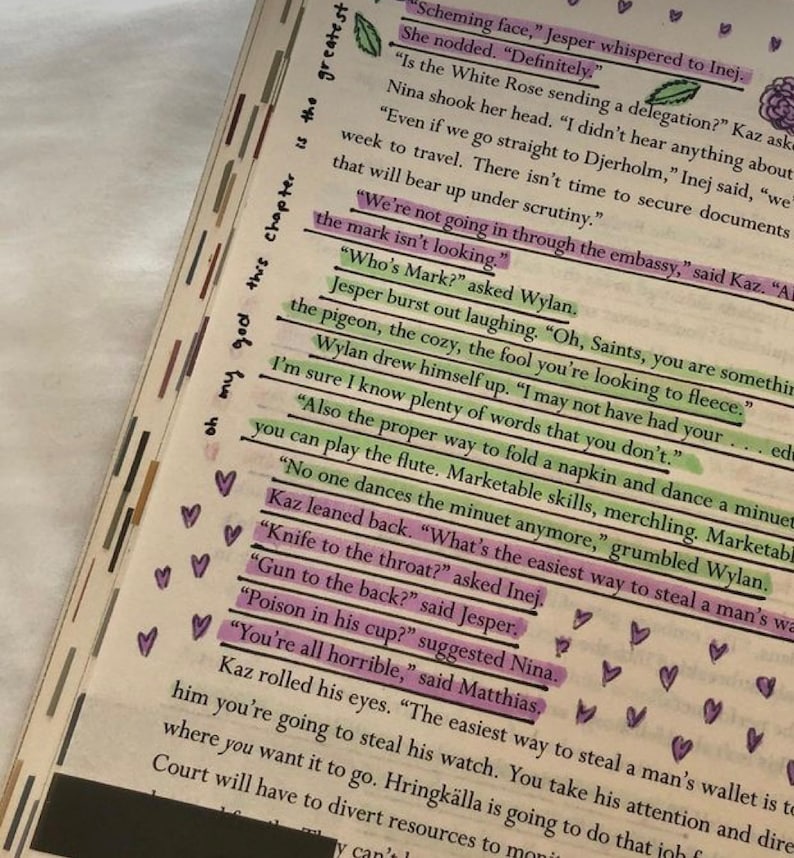 oh my god this chapter is the greatest
"Scheming face," Jesper whispered to Inej.
She nodded. "Definitely."
"Is the White Rose sending a delegation?" Kaz
Nina shook her head. "I didn't hear anything about
"Even if we go straight to Djerholm," Inej said, "we
week to travel. There isn't time to secure documents
that will bear up under scrutiny."
"We're not going in through the embassy," said Kaz.
the mark isn't looking."
"Who's Mark?" asked Wylan.
Jesper burst out laughing. "Oh, Saints, you are
the pigeon, the cozy, the fool you're looking to fleece."
Wylan drew himself up. "I may not have had your . . .
I'm sure I know plenty of words that you don't."
"Also the proper way to fold a napkin and dance a minuet
you can play the flute. Marketable skills, merchling.
"No one dances the minuet anymore," grumbled Wylan.
Kaz leaned back. "What's the easiest way to steal a man's
"Knife to the throat?" asked Inej.
"Gun to the back?" said Jesper.
"Poison in his cup?" suggested Nina.
"You're all horrible," said Matthias.
Kaz rolled his eyes. "The easiest way to steal a man's wallet is
him you're going to steal his watch. You take his attention and
where you want it to go. Hringkälla is going to do that job
Court will have to divert resources to
can't